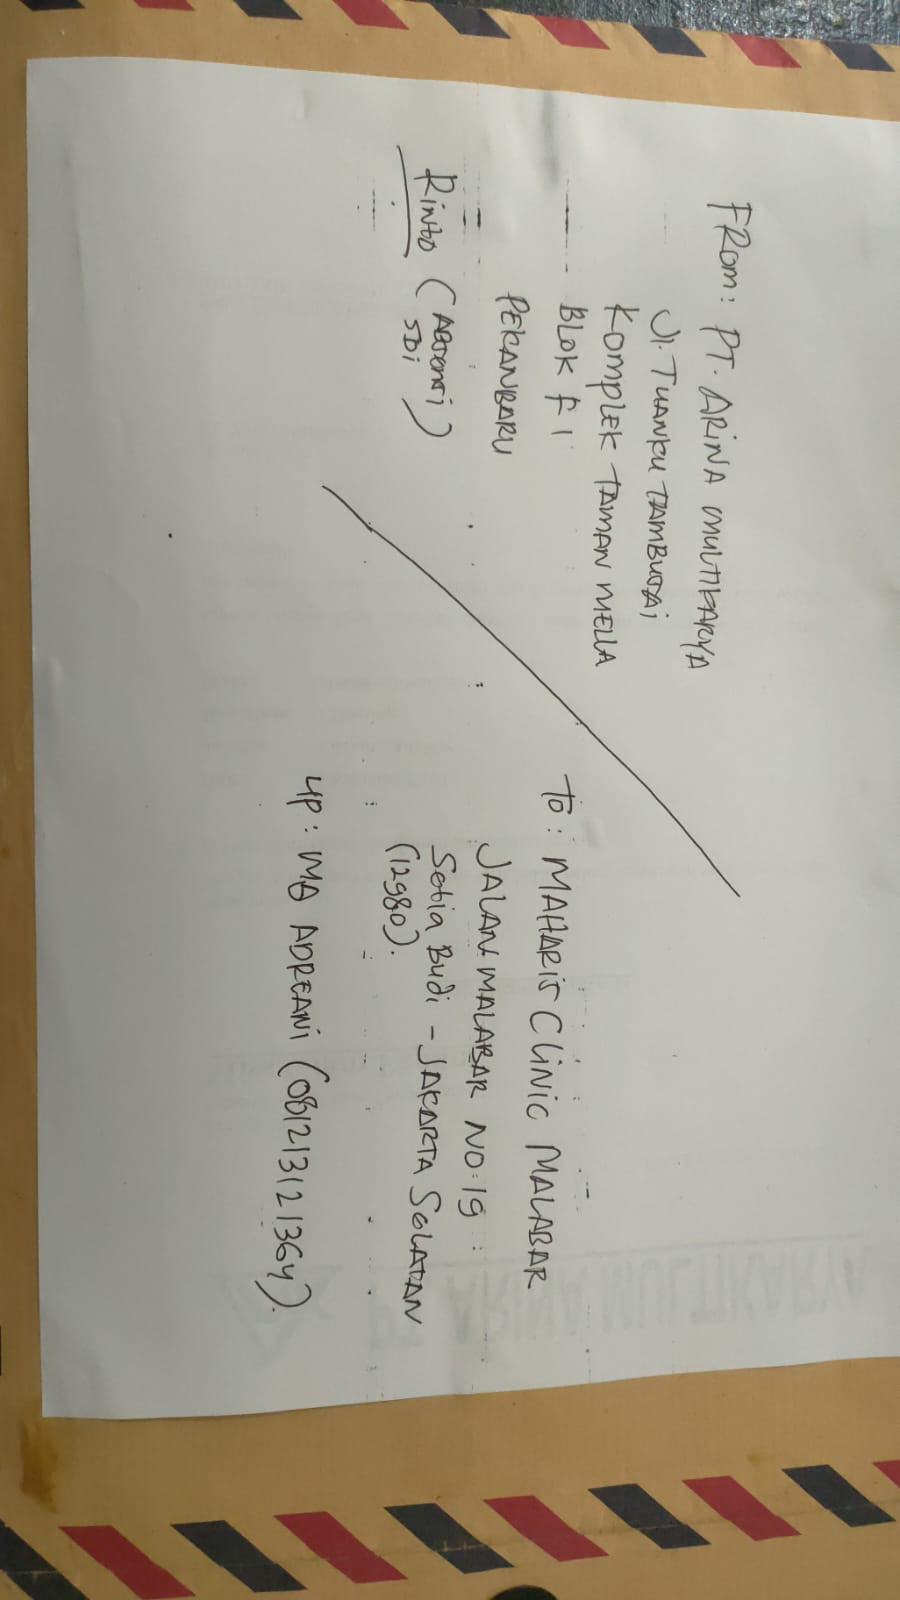 FROM: PT. ARINA MULTIKARYA
Jl. TUANKU TAMBUSAI
KOMPLEK TAMAN MELLA
BLOK F 1
PEKANBARU
Rinto (
SDi )
To: MAHARIS CLINIC MALABAR
JALAN MALABAR NO:19
Setia Budi - JAKARTA SELATAN
(12980).
up: ADREANI (081213121364).
PT ARINA MULTIKARYA